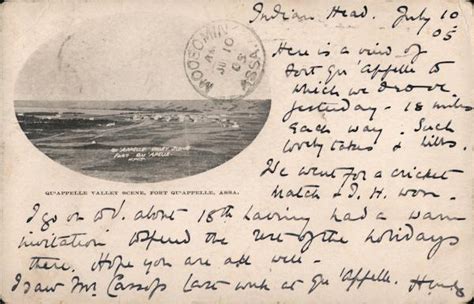 Indian Head. July 10
05
MOOSOMIN
AM
JU 10
05
ASSA.
Here is a view of
Fort Qu'Appelle to
which we drove
yesterday - 18 miles
Each way. Such
lovely lakes & hills.
We went for a cricket
match & I. H. won.
QU'APPELLE VALLEY SCENE
FORT QU'APPELLE
QU'APPELLE VALLEY SCENE, FORT QU'APPELLE, ASSA.
I go on about 18th having had a warm
invitation to spend the rest of the holidays
there. Hope you are all well.
I saw Mr. last week at Qu'Appelle.